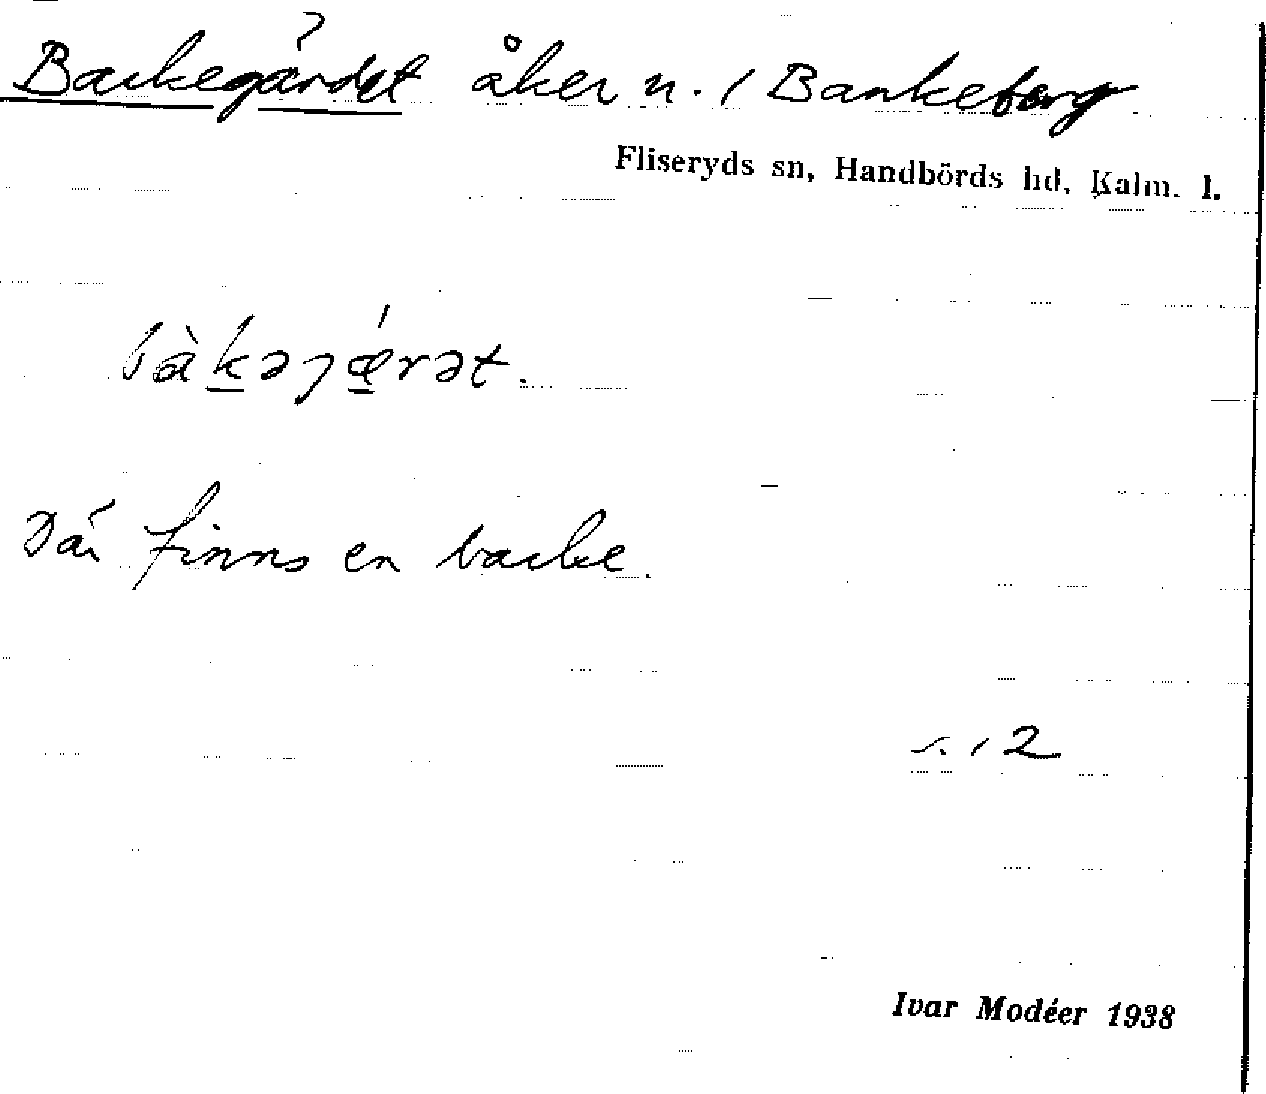 Backegärdet åker n. / Bankeberg
Fliseryds sn, Handbörds hd, Kalm. l.
bàkəɟǽrət.
Där finns en backe.
s. 12
Ivar Modéer 1938